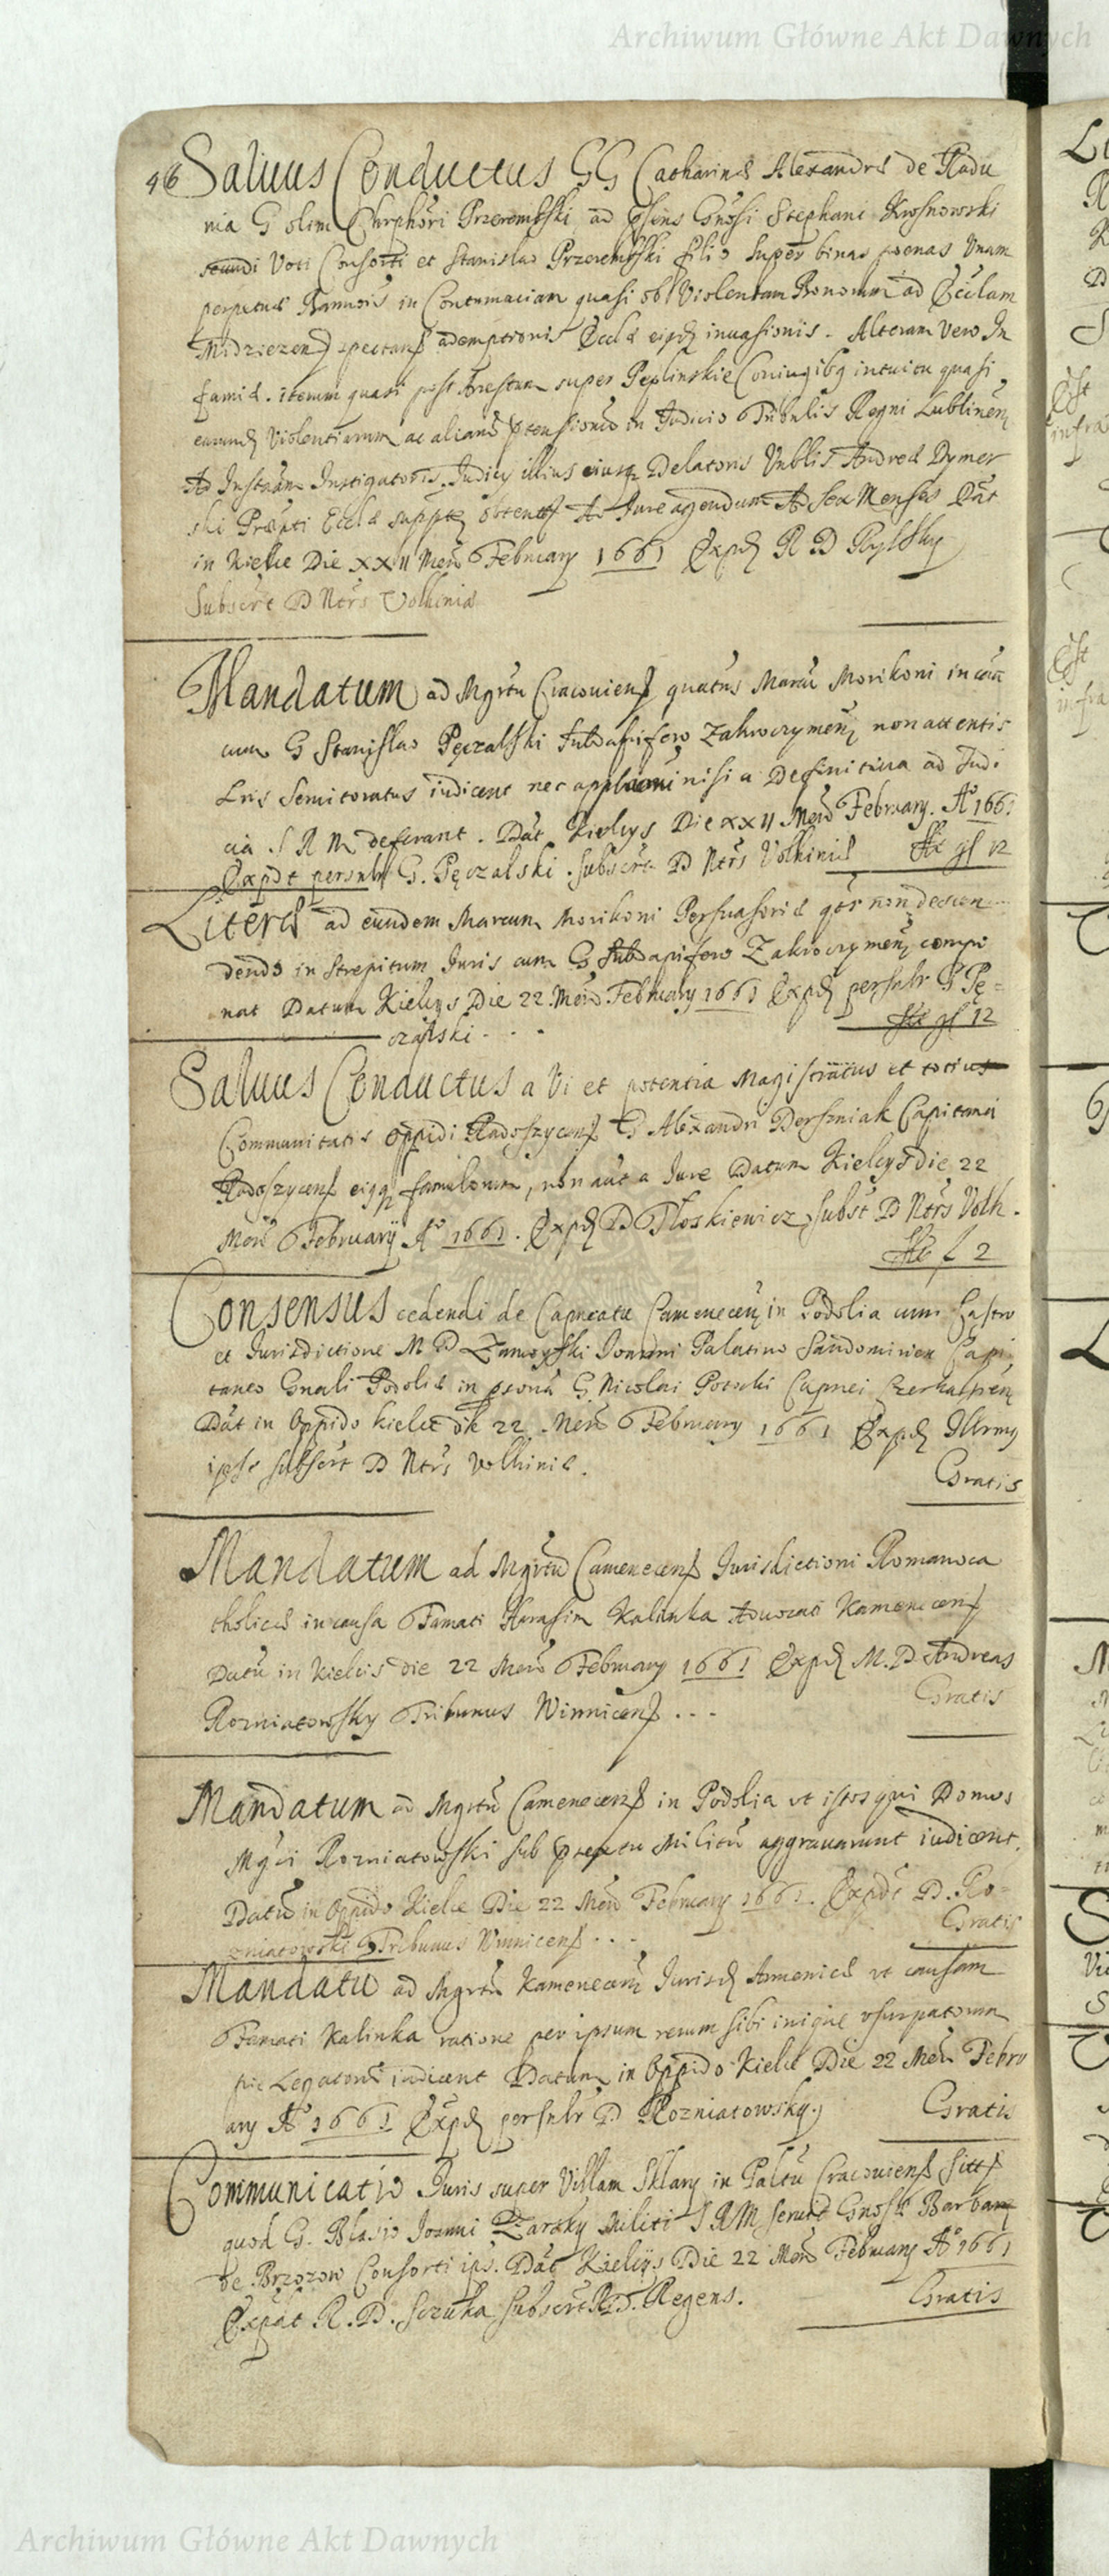 Archiwum Główne Akt Dawnych
46 Saluus Conductus GG Catharinæ Alexandræ de Radu
nia G olim Chrphori Przerembski, ad pñs Gnosi Stephani Krosnowski
secundi Voti Consorti et Stanislao Przerembski filio super binas poenas Unam
perpetuæ Bannois in Contumaciam quasi ob Violentam Bonorum ad Ecclam
spectan ademptionis Eccl æ eiusd inuasionis. Alteram Vero In
famiæ. itemm quasi post Arestum super Peplinskie Coniugibq intuitu quasi
earund Violentiarum ac aliarū ptensionū in Judicio Tribnlis Regni Lublinen
Ad Instam Instigatoris Judicy illius eiusq Delatoris Nublis Andreæ Dymer
ski Præpti Eccl æ obtent Ad Jure agendum Ad sex Menses Dat
in Kielce Die XXII Mens February 1661 Exped R D Rylsky
Subscrt D Ntrs Volhiniæ
Mandatum ad Mgrtu Cracouien quatus Marcū Morikoni in cãa
cum G Stanislao Pęczalski Subdapifero Zakroczymen non attentis
Lris Semitoratus iudicent nec nisi a Definitiua ad Judi
cia S R M deferant. Dat Kielcys Die XXII Mens February. Ao 1661
Expdt personlr G. Pęczalski. subscrt D Ntrs Volhiniæ gl 12
Literæ ad eundem Marcum Morikoni Persuasoriæ qtes non descen
dendo in strepitum Juris cum G Subdapifero Zakroczymen compo
nat Datum Kielcys Die 22 Mens February 1661 Exped persnlr G Pę=
czalski . . . gl 12
Saluus Conductus a Vi et potentia Magistratus et totius
Communitatis Oppidi Radoszycen G Alexandri Derszniak Capitanei
Radoszycen eiqq famulorum, non aut a Jure Datum Kielcys die 22
Mens February Ao 1661. Exped D Tloskiewicz, subst D Ntrs Volh.
f 2
Consensus cedendi de Capneatu Camenecen in Podolia cum Castro
et Jurisdictione M D Zamoyski Joanni Palatino Sandomirien Capi
taneo Gnali Podoliæ in psonã G. Nicolai Potocki Capnei
Dat in Oppido kielce die 22 Mens February 1661 Exped Illrmq
ipse subscrt D Ntrs Volhiniæ.
Gratis
Mandatum ad Mgrtū Camenecen Jurisdictioni Romanoca
tholicæ in causa Famati Harasim Kalinka Aduocati Kamenecen
Datū in Kielcis die 22 Mens February 1661 Exped M. D. Andreas
Rozniatowsky Tribunus Winnicen . . . Gratis
Mandatum ad Mgrtū Camenecen in Podolia vt istos qui Domos
Mgci Rozniatowski sub ptextu Militū aggrauarunt iudicent.
Datū in Oppido Kielce Die 22 Mens February 1661. Expdt D. Ro=
zniatowski Tribunus Winnicen . . . Gratis
Mandatū ad Mgrtū Kamenecen Jurisd Armenicæ vt causam
Famati Kalinka ratione per ipsum rerum sibi iniqūe vsurpatorum
iudicent Datum in Oppido Kielce Die 22 Mens Febru
ary Ao 1661 Exped persnlr D Rozniatowsky.) Gratis
Communicatio Juris super Villam Sklary in Paltu Cracouien sitt
quod G. Blasio Joanni Zarsky Militi S R M seruit Gnosæ Barbaræ
de Brzozow Consorti ips. Dat Kielcys Die 22 Mens February Ao 1661
Expdt R. D. Sczuka subscrt R. D. Regens. Gratis
Archiwum Główne Akt Dawnych